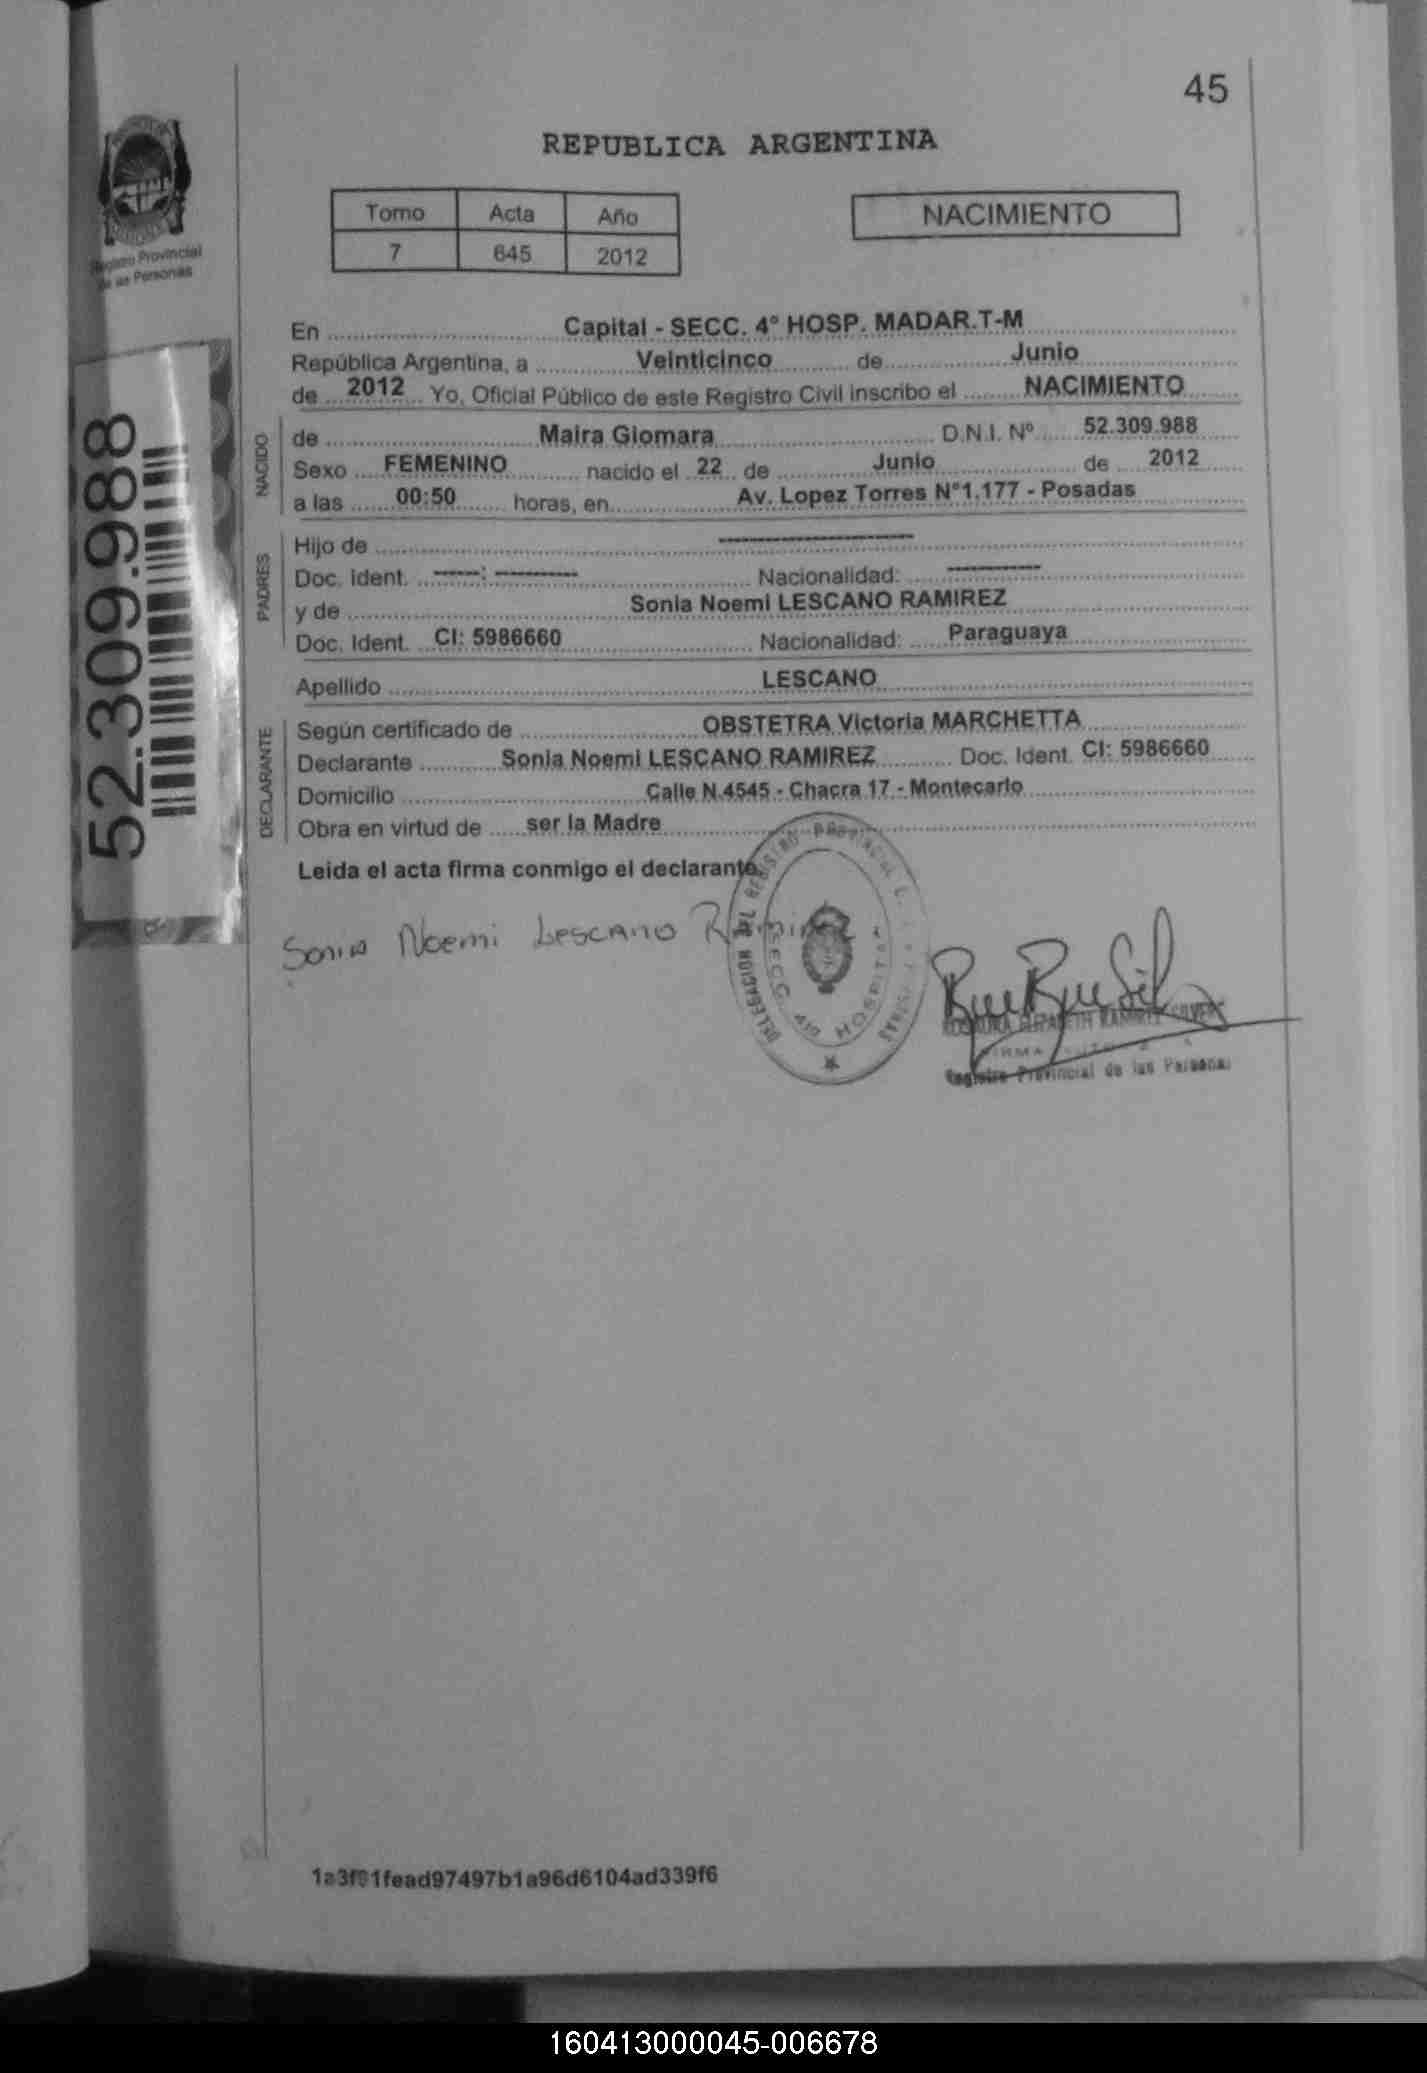 45
REPUBLICA ARGENTINA
Tomo Acta Año
7 645 2012
NACIMIENTO
Registro Provincial
de las Personas
52.309.988
En Capital - SECC. 4° HOSP. MADAR.T-M
República Argentina, a Veinticinco de Junio
de 2012 Yo, Oficial Público de este Registro Civil inscribo el NACIMIENTO
NACIDO
de Maira Giomara D.N.I. Nº 52.309.988
Sexo FEMENINO nacido el 22 de Junio de 2012
a las 00:50 horas, en Av. Lopez Torres N°1.177 - Posadas
PADRES
Hijo de --------------------
Doc. Ident. -----: --------- Nacionalidad: ----------
y de Sonia Noemi LESCANO RAMIREZ
Doc. Ident. CI: 5986660 Nacionalidad: Paraguaya
Apellido LESCANO
DECLARANTE
Según certificado de OBSTETRA Victoria MARCHETTA
Declarante Sonia Noemi LESCANO RAMIREZ Doc. Ident. CI: 5986660
Domicilio Calle N.4545 - Chacra 17 - Montecarlo
Obra en virtud de ser la Madre
Leida el acta firma conmigo el declarante
Sonia Noemi Lescano Ramirez
DELEGACION DEL REGISTRO PROVINCIAL
SECC. 4ta HOSPITAL
ELIZABETH RAMIREZ
FIRMA
Registro Provincial de las Personas
1a3f91fead97497b1a96d6104ad339f6
160413000045-006678